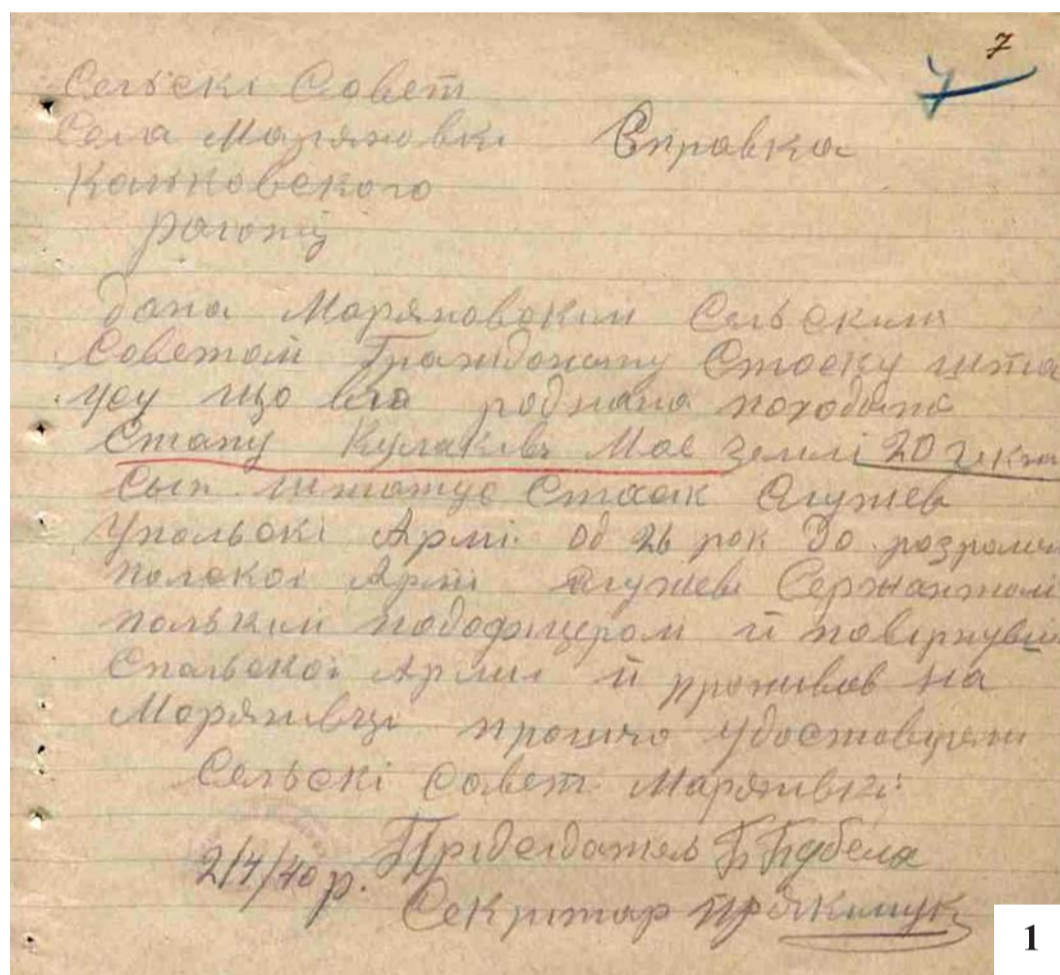 7
7
Сельскі Совет
Села Маряновкі Справка
рагону
дана Маряновским Сельским
Советом Гражданину Стаску
усу що его родина походит
Стану Кулаків Має землі 20 гект
Сын Стасик Служев
Упольскі Армі од 26 рок До розгрома
полскоі Армі служев Сержантом
польким подофицером й повірнувш
Спольскоі Арміи й проживав на
Марянівці прошчо удостовіряєт
Сельскі Совет Марянівкі
2/4/40 р. Прідсідатель Б Бубела
Секритар
1